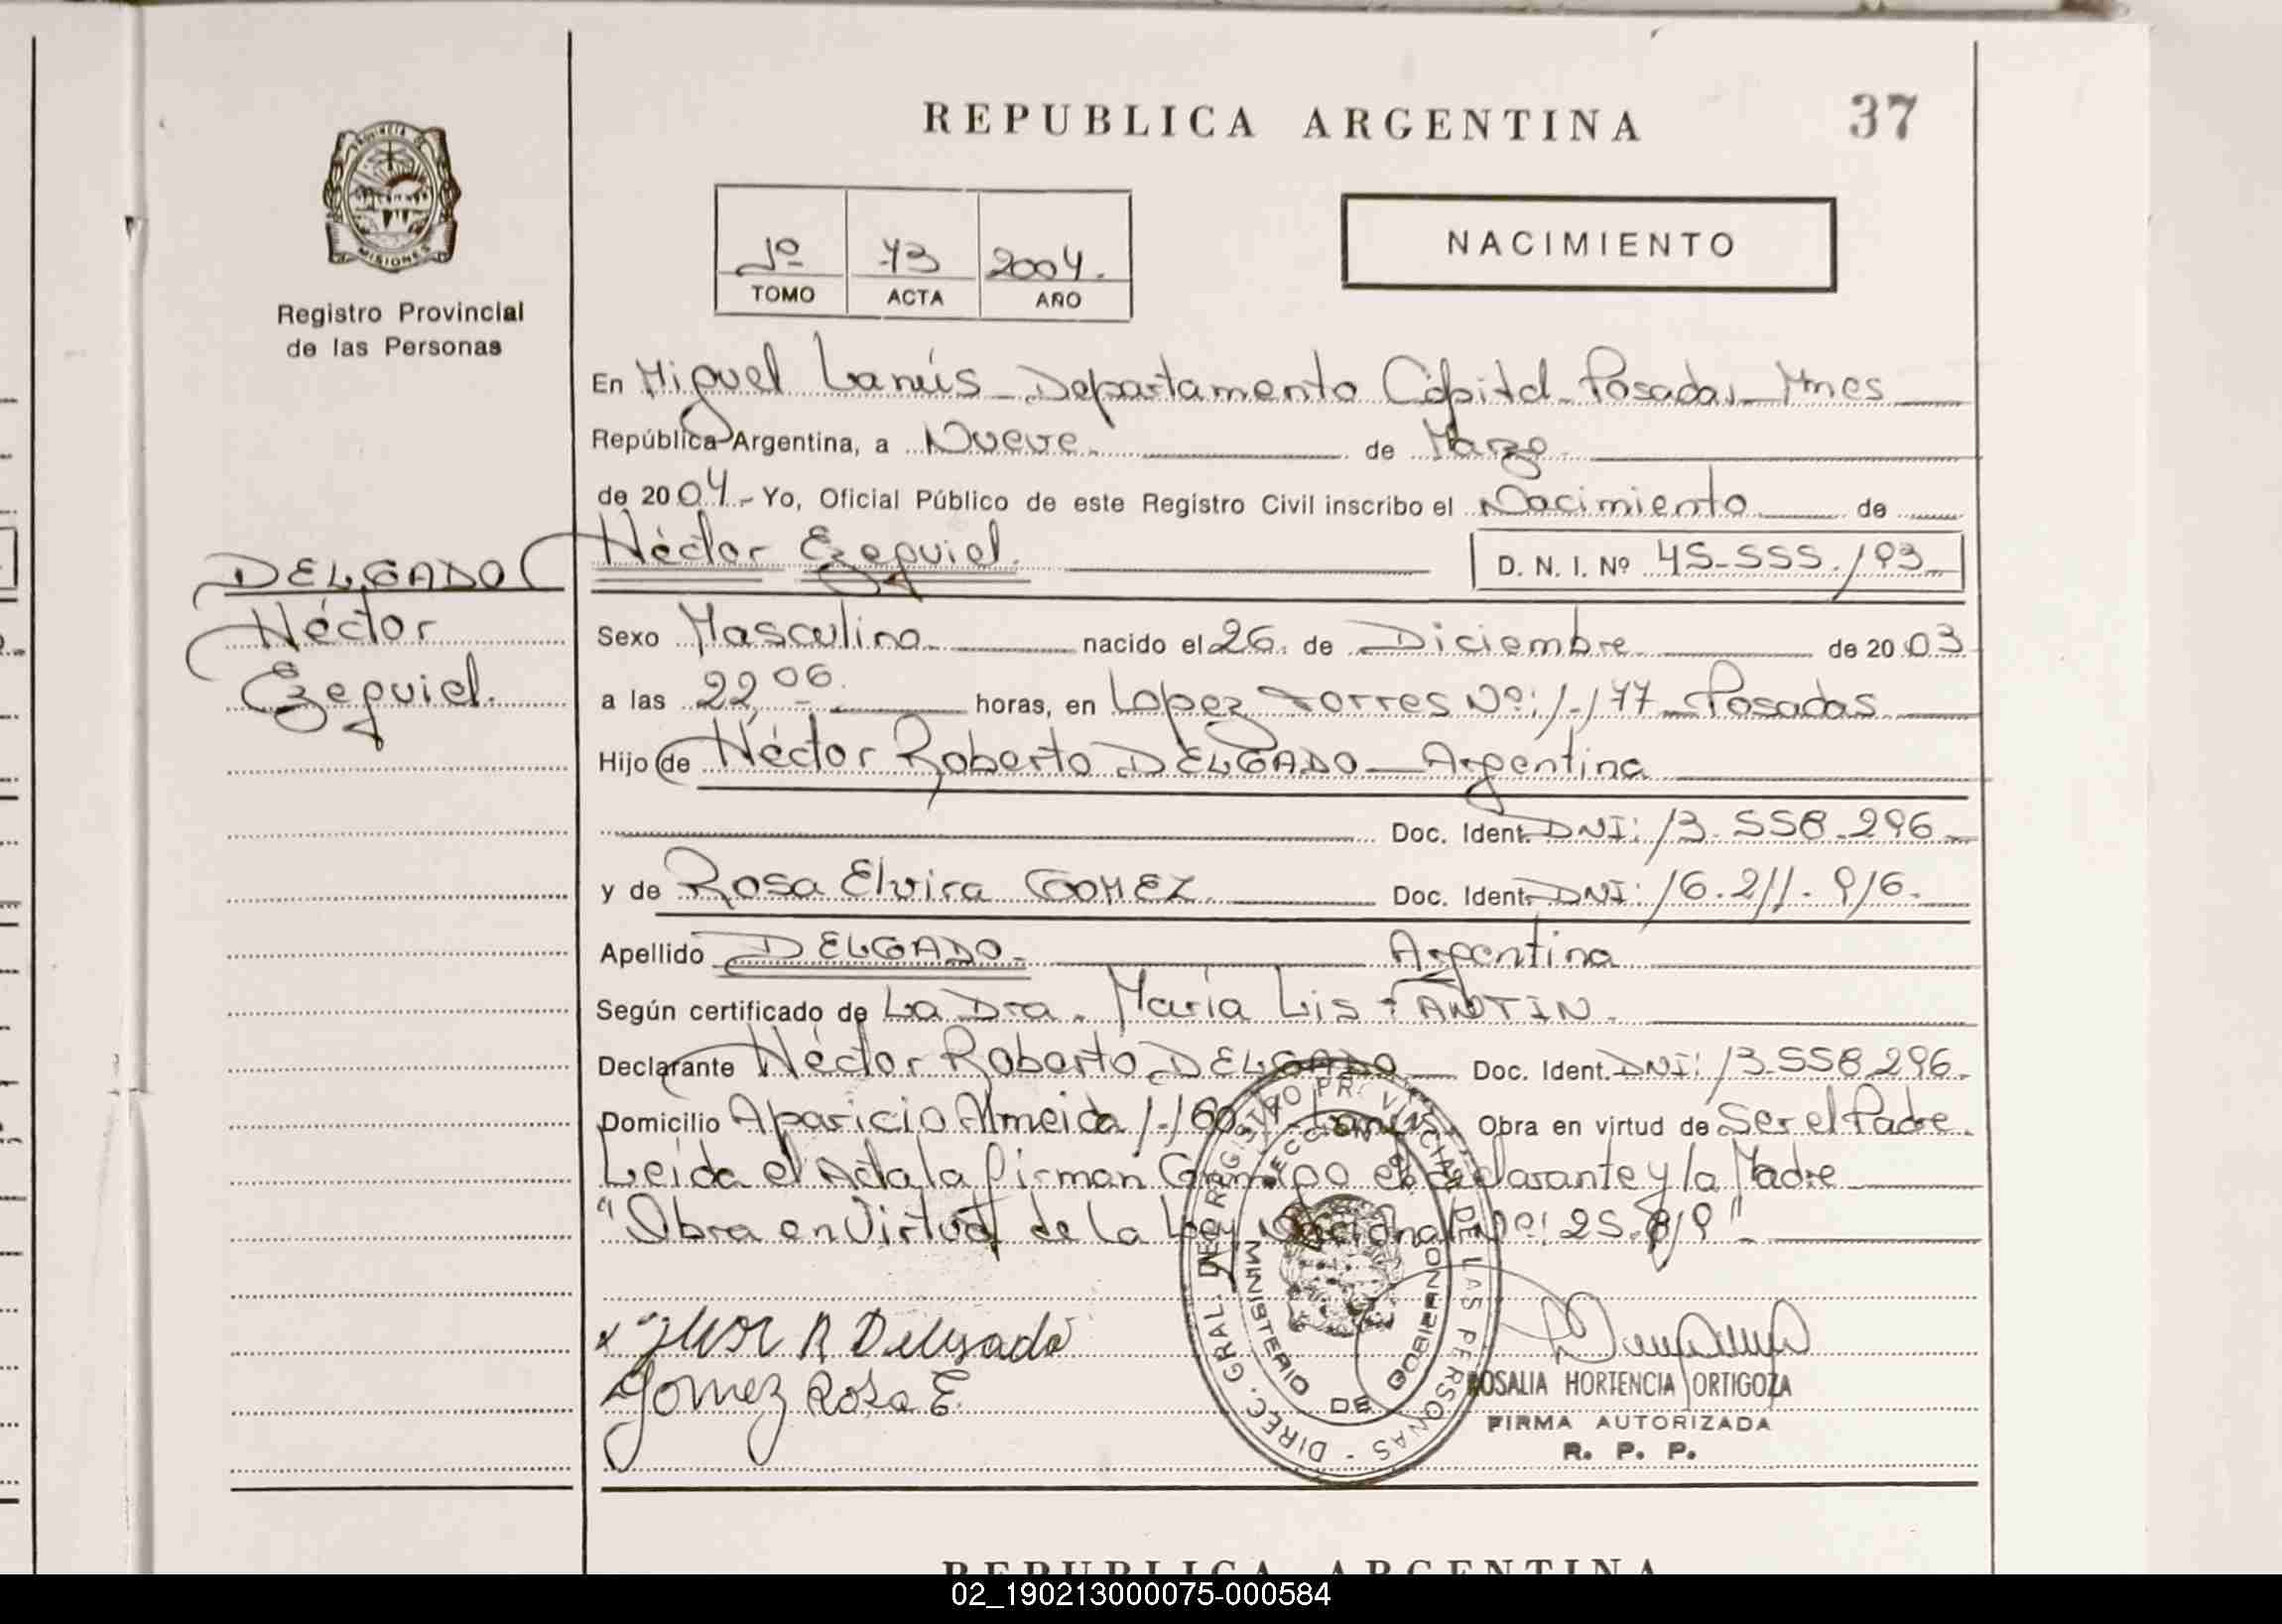 REPUBLICA ARGENTINA
37
PROVINCIA DE
MISIONES
Registro Provincial
de las Personas
1º 73 2004.
TOMO ACTA AÑO
NACIMIENTO
En Miguel Lanús - Departamento Capital - Posadas - Mnes
República Argentina, a Nueve. de Marzo.
de 2004.- Yo, Oficial Público de este Registro Civil inscribo el Nacimiento de
Héctor Ezequiel.
D. N. I. Nº 45.555.193
DELGADO
Héctor
Ezequiel.
Sexo Masculino nacido el 26. de Diciembre de 2003
a las 22,06. horas, en Lopez Torres Nº: 1.177 - Posadas
Hijo de Héctor Roberto DELGADO - Argentina
Doc. Ident. DNI: 13.558.296
y de Rosa Elvira GOMEZ. Doc. Ident. DNI: 16.211.916.
Apellido DELGADO. Argentina
Según certificado de La Dra. María Lis FANTIN.
Declarante Héctor Roberto DELGADO Doc. Ident. DNI: 13.558.296.
Domicilio Aparicio Almeida 1.160 - Lanús. Obra en virtud de Ser el Padre.
Leida el Acta la firman Conmigo el declarante y la Madre
"Obra en Virtud de la Ley Nacional Nº: 25.819"
R Delgado
Gomez Rosa E.
DIREC. GRAL. DEL REGISTRO PROVINCIAL DE LAS PERSONAS -
MINISTERIO DE GOBIERNO
ROSALIA HORTENCIA ORTIGOZA
FIRMA AUTORIZADA
R. P. P.
REPUBLICA ARGENTINA
02_190213000075-000584